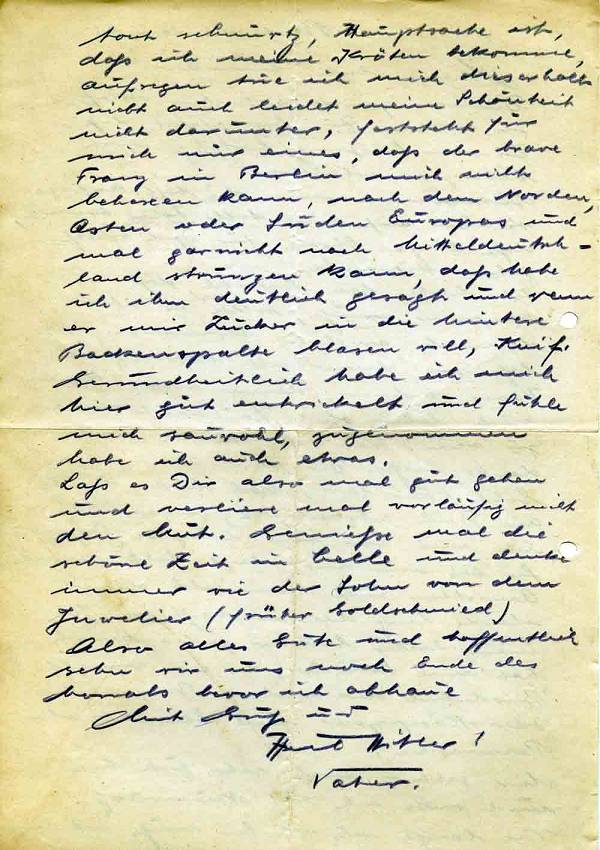 tout schnurtz, Hauptsache ist,
daß ich meine Kröten bekomme,
aufregen tue ich mich dieserhalb
nicht auch leidet meine Schönheit
nicht darunter, feststeht für
mich nur eines, daß der brave
Franz in Berlin mich nicht
nach dem Norden,
Osten oder Süden Europas und
mal garnicht nach Mitteldeutsch-
land kann, daß habe
ich ihm deutlich gesagt und wenn
er mir Zucker in die hintere
Backenspalte blasen will,
Gesundheitlich habe ich mich
hier gut entwickelt und fühle
mich sauwohl, zugenommen
habe ich auch etwas.
Laß es Dir also mal gut gehen
und verliere mal vorläufig nicht
den Mut. Geniesse mal die
schöne Zeit in Celle und denke
immer wie der Sohn von dem
Juwelier (früher Goldschmied)
Also alles Gute und hoffentlich
sehn wir uns noch Ende des
Monats bevor ich abhaue
Mit Gruß und
Heil Hitler!
Vater.